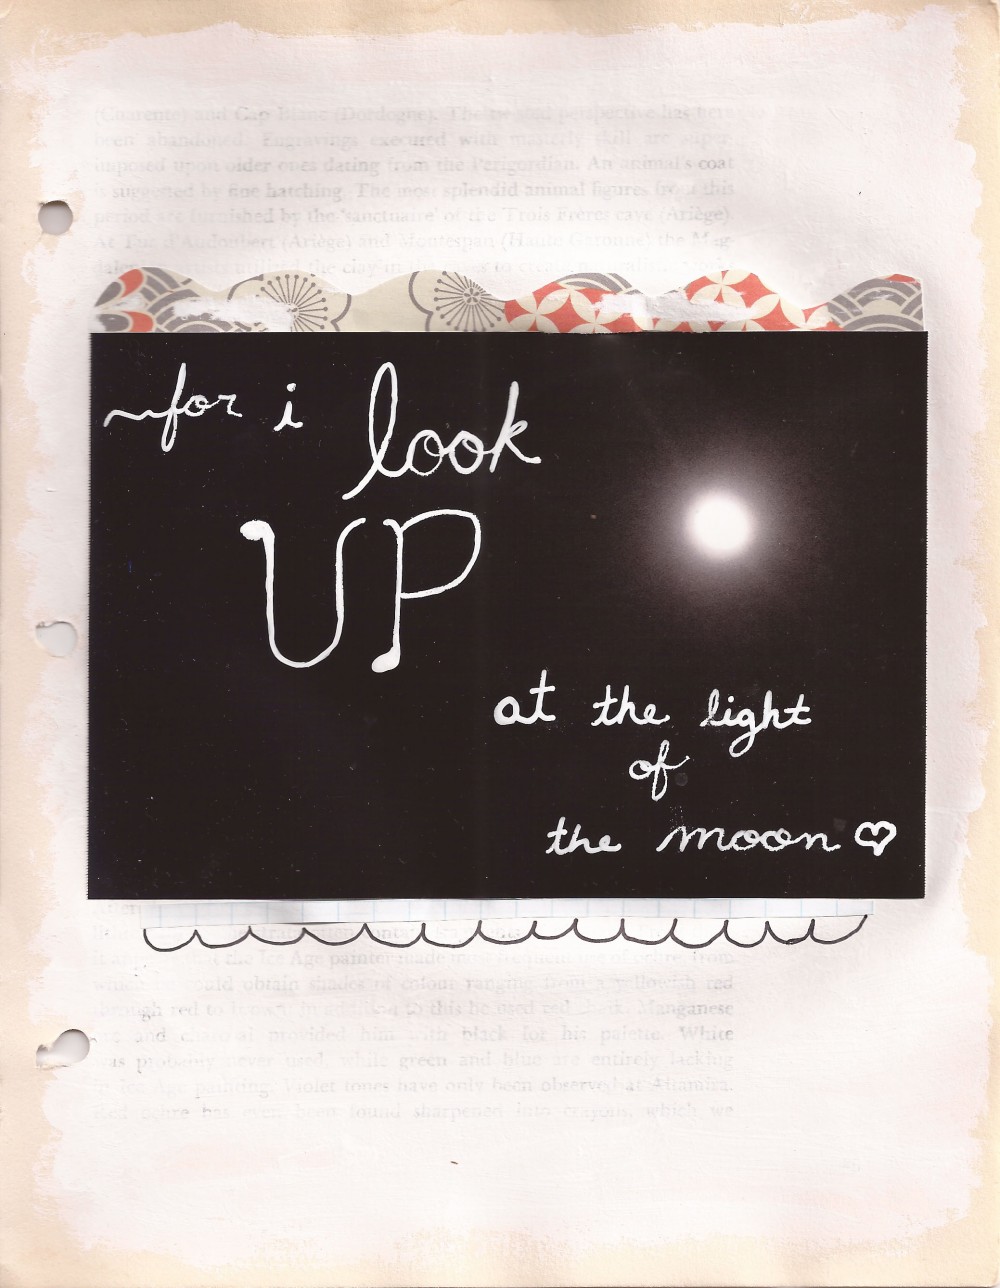 (Charente) and Cap Blanc (Dordogne). The perspective has here
been abandoned. Engravings executed with masterly skill are super-
imposed upon older ones dating from the Perigordian. An animal's coat
is suggested by fine hatching. The most splendid animal figures from this
period are furnished by the 'sanctuaire' of the Trois Frères cave (Ariège).
At Tuc d'Audoubert (Ariège) and Montespan (Haute Garonne) the Mag-
utilized the clay in the
for i look
UP
at the light
of
the moon
that the Ice Age painter made most frequent use of ochre, from
which he could obtain shades of colour ranging from a yellowish red
through red to brown. In addition to this he used red chalk. Manganese
and charcoal provided him with black for his palette. White
was probably never used, while green and blue are entirely lacking
in Ice Age painting. Violet tones have only been observed at Altamira.
Red ochre has even been found sharpened into crayons, which we